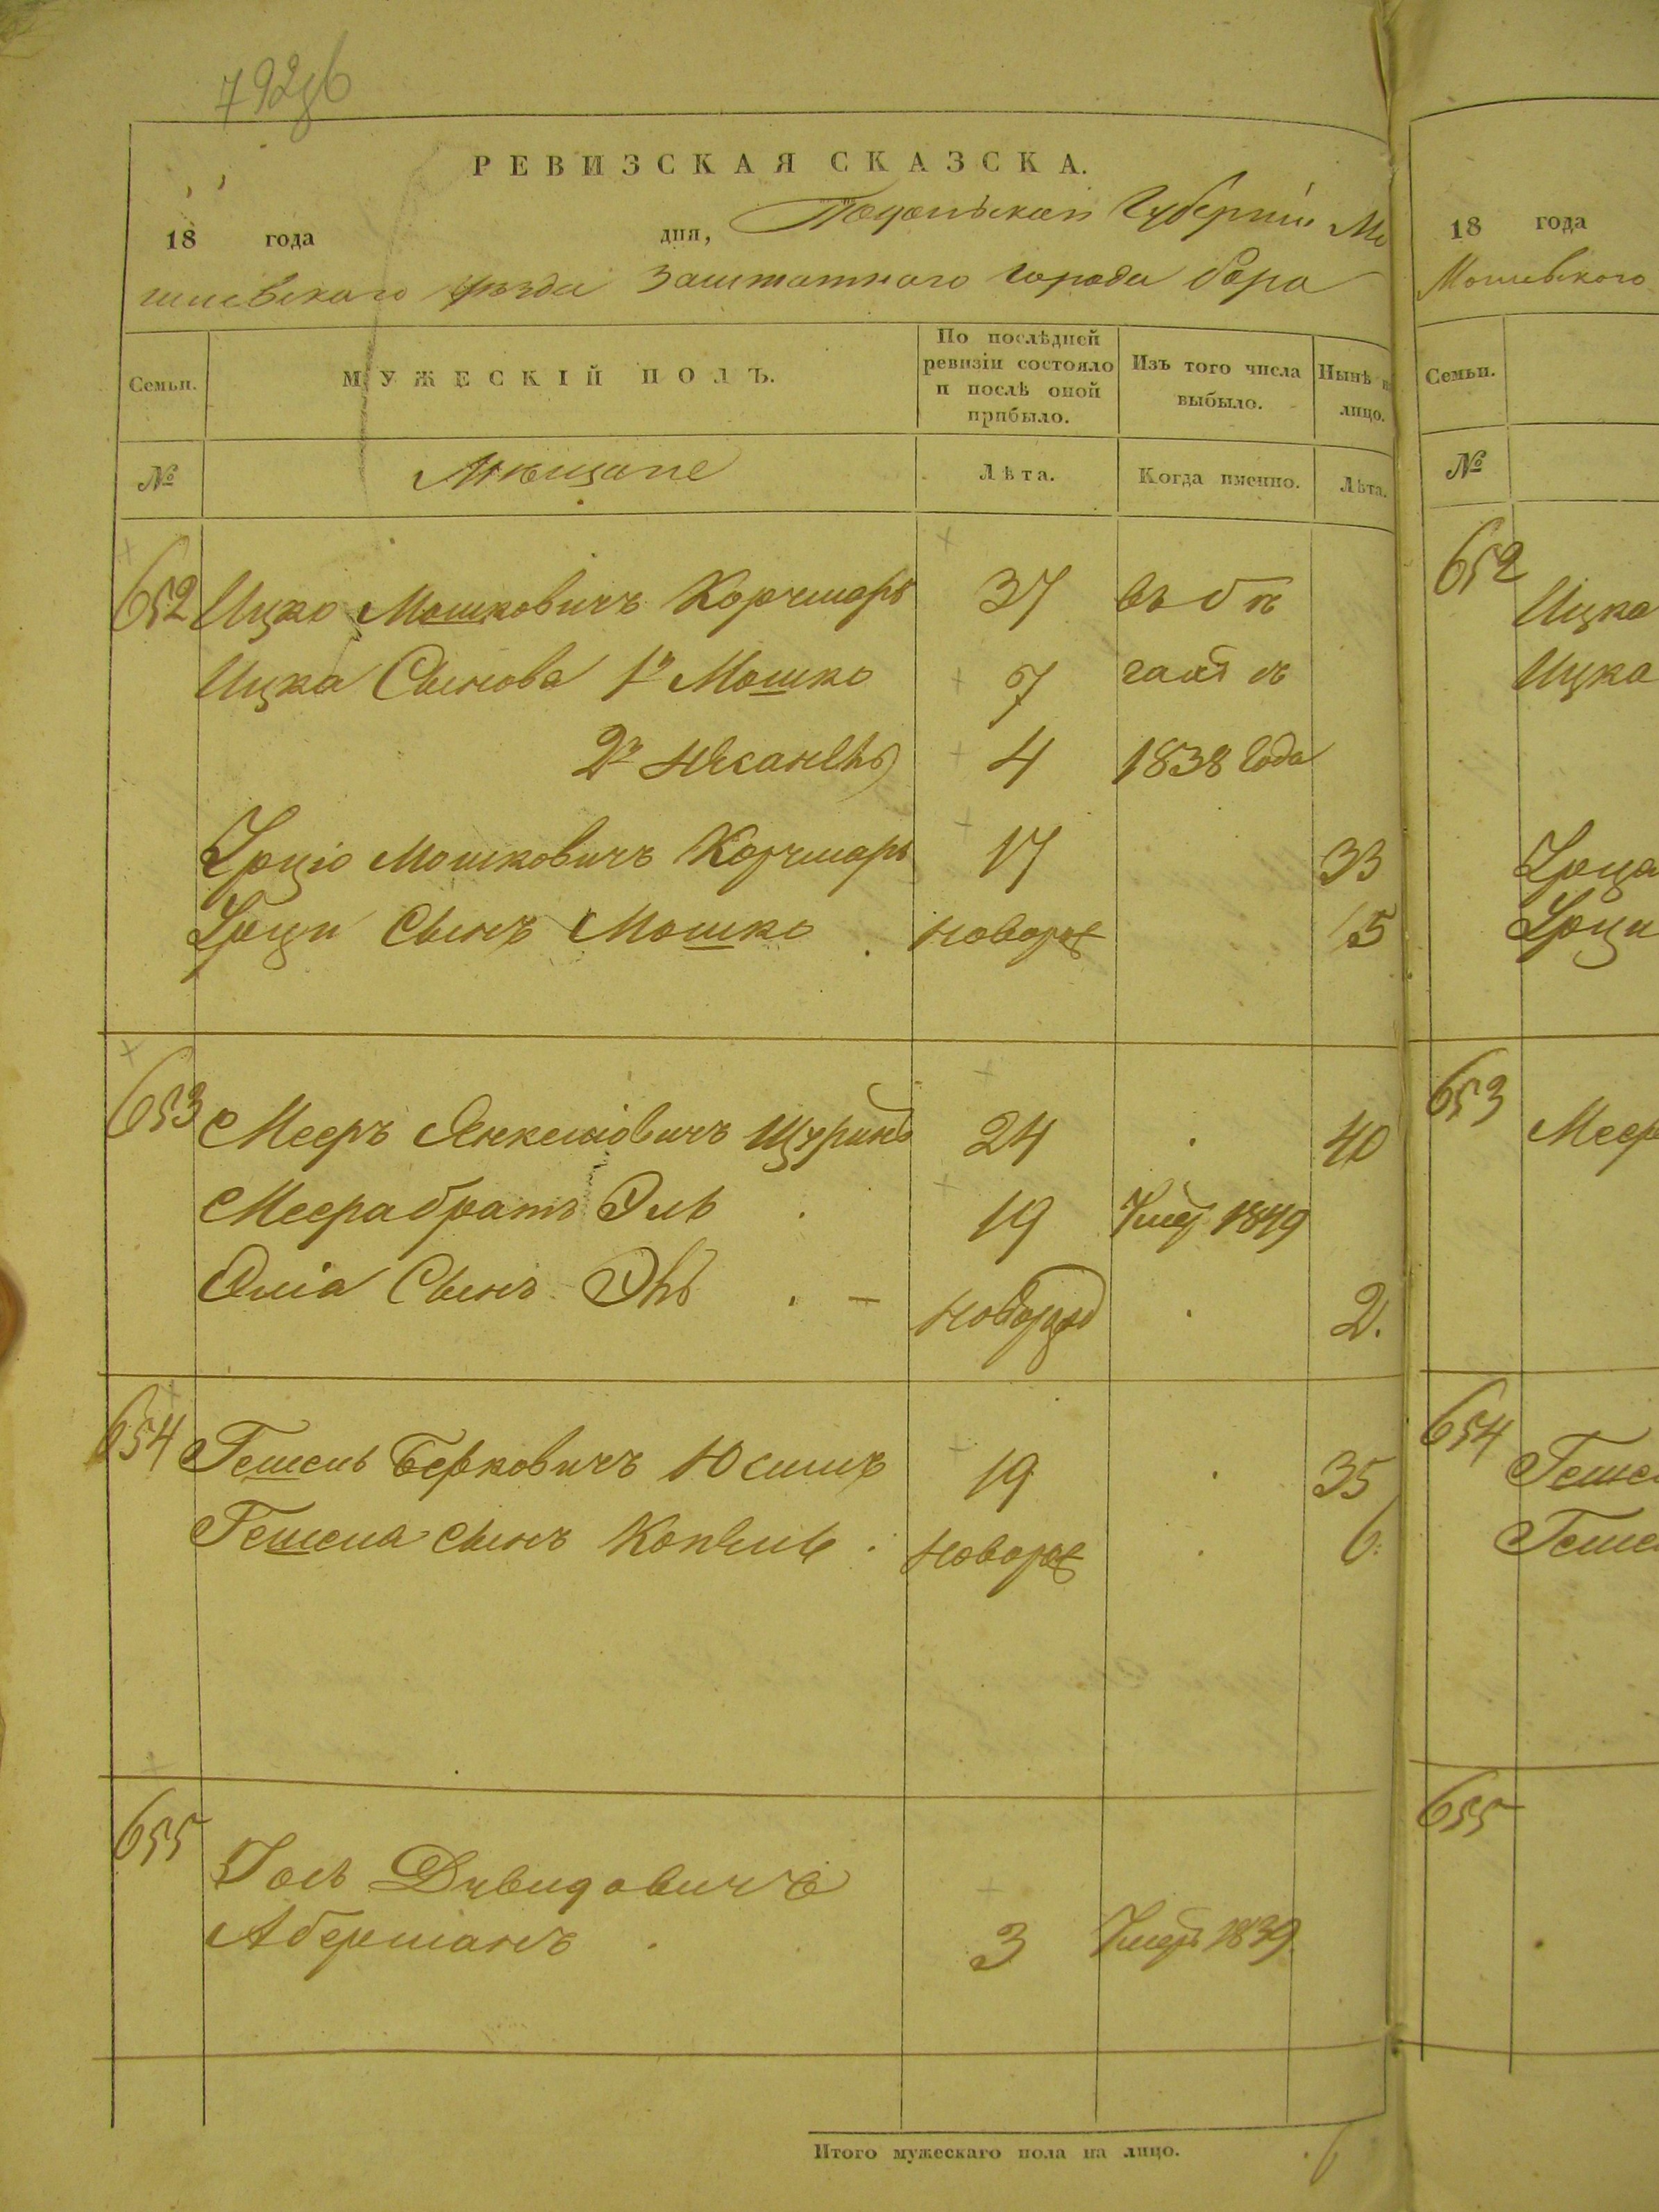 792об
РЕВИЗСКАЯ СКАЗСКА.
18 года дня, Подольской Губернии Мо
гилевского уѣзда Заштатного города Бара
Семьи. МУЖЕСКІЙ ПОЛЪ. По послѣдней ревизіи состояло и послѣ оной прибыло. Изъ того числа выбыло. Нынѣ н лицо.
№ Мѣщане Лѣта. Когда именно. Лѣта.
652 Ицко Мошковичъ Корчмарь 37 въ б
Ицка Сынова 1й Мошко 7 съ
2й 4 1838 Года
Мошковичъ Корчмарь 17 33
Сынъ Мошко новорж 15
653 Мееръ Янкелiовичъ 24 40
Меера братъ Эль 19 Умер 1849
Эліа Сынъ 2.
654 Гешель Берковичъ 19 35
Гешеля сынъ Копель новорж 6
655 Іось Давидовичъ
Аберманъ 3 Умеръ 1839
Итого мужескаго пола на лицо. 6
18 года
Могилевского
Семьи.
№
652
Ицка
Ицка
653 Меер
654 Геше
Геше
655